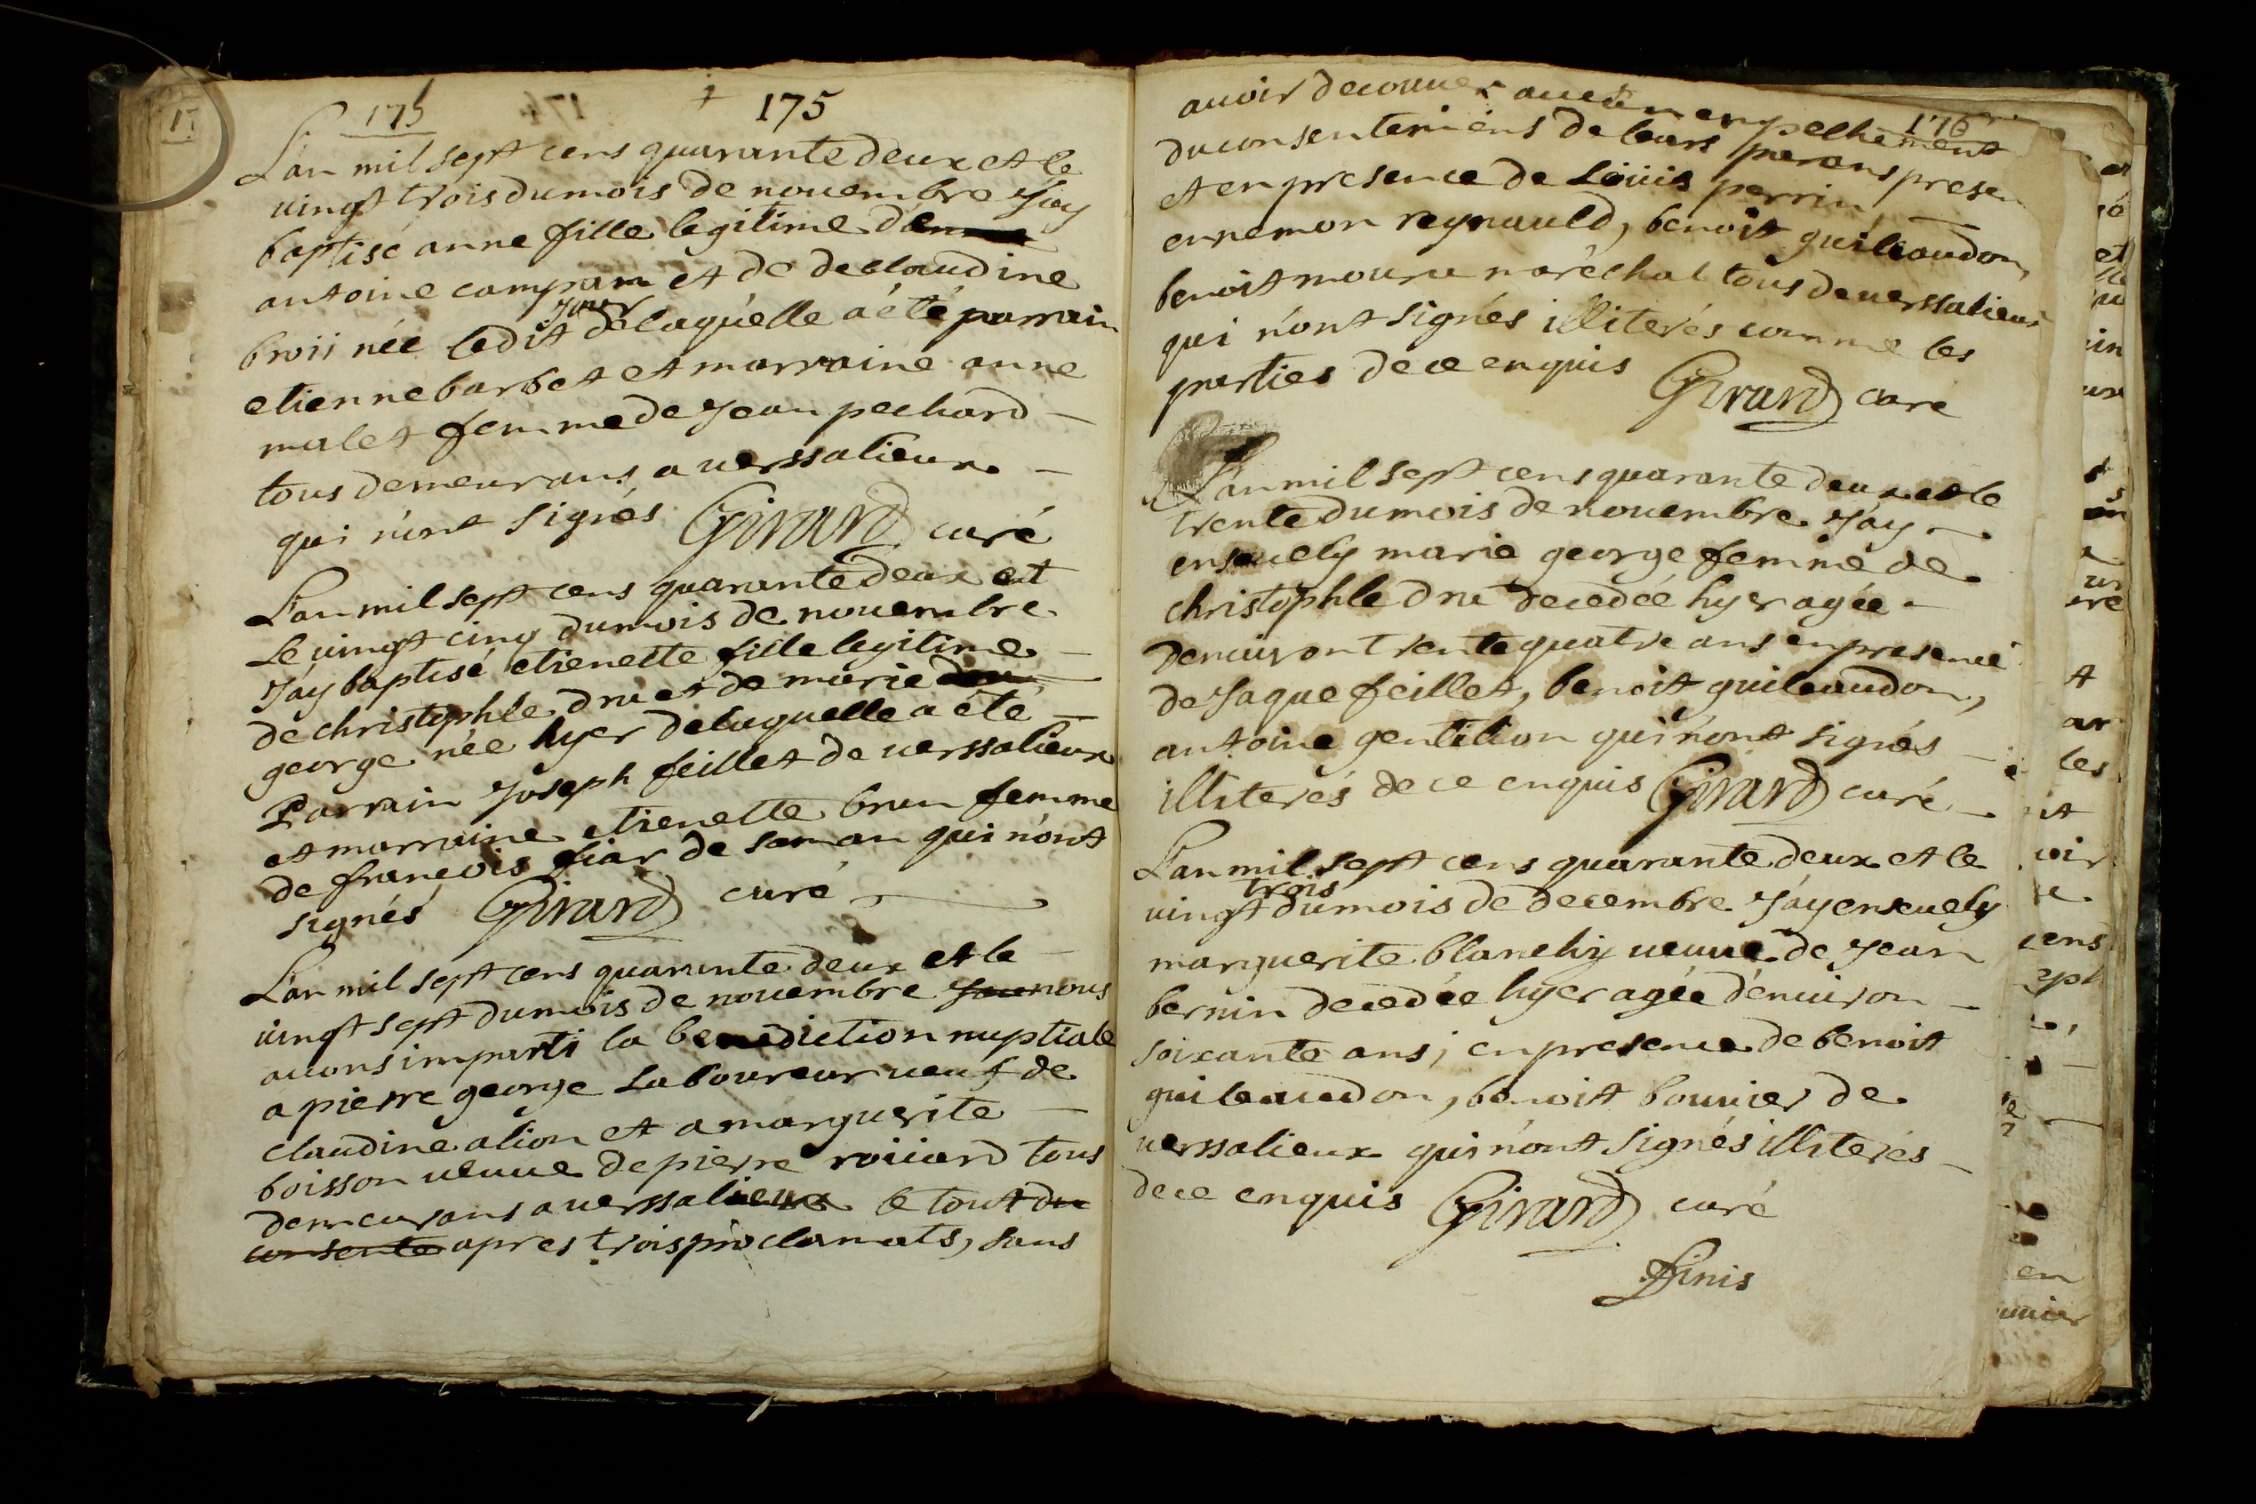 175
175
L'an mil sept cens quarante deux et le
vingt trois du mois de novembre J'ay
baptisé anne fille legitime
antoine campan et de de claudine
broii née ledit Jour de laquelle a été parrain
etienne barbet et marraine anne
malet femme de Jean pechard
tous demeurans a verssalieux
qui n'ont signés Girard curé
L'an mil sept cens quarante deux et
le vingt cinq du mois de novembre
J'ay baptisé etienette fille legitime
de christophle dru et de marie
george née hyer de laquelle a été
Parrain Joseph feillet de verssalieux
et marraine etienette brun femme
de françois fiar de saman qui n'ont
signés Girard curé
L'an mil sept cens quarante deux et le
vingt sept du mois de novembre nous
avons imparti la benediction nuptiale
a pierre george laboureur veuf de
claudine alion et a marguerite
boisson veuve de pierre roiiard tous
demeurans a verssalieux le tout du
consente apres trois proclamats, sans
176
avoir decouvert aucun empechement
du consentemens de leurs parens presen
et en presence de Loüis perrin,
ennemon reynauld, benoit guileaudon,
benoit mouru maréchal tous de verssalieux
qui n'ont signés illiterés comme les
parties de ce enquis Girard curé
L'an mil sept cens quarante deux et le
trente du mois de novembre J'ay
ensevely marie george femme de
christophle dru decedée hyer agée
d'environ trente quatre ans en presence
de Jaque feillet, benoit guileaudon,
antoine gentilion qui n'ont signés
illiterés de ce enquis Girard curé
L'an mil sept cens quarante deux et le
vingt trois du mois de decembre J'ay ensevely
marguerite blanchy veuve de Jean
bernin decedée hyer agée d'environ
soixante ans, en presence de benoit
guileaudon, benoit bouvier de
verssalieux qui n'ont signés illiterés
de ce enquis Girard curé
Finis